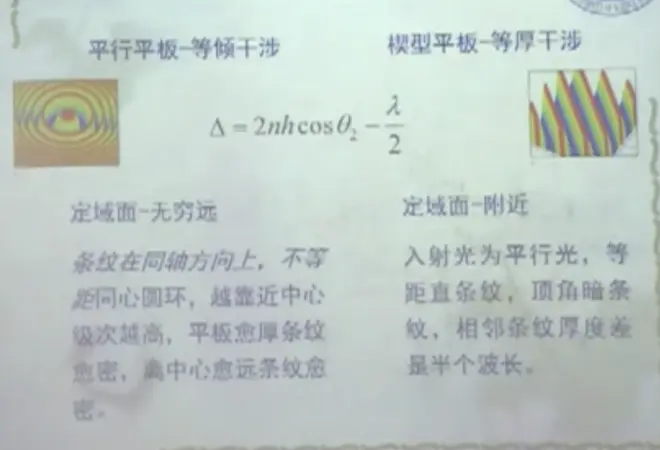 平行平板-等倾干涉
楔型平板-等厚干涉
Δ = 2nh cosθ₂ - λ/2
定域面-无穷远
条纹在同轴方向上，不等
距同心圆环，越靠近中心
级次越高，平板愈厚条纹
愈密，离中心愈远条纹愈
密。
定域面-附近
入射光为平行光，等
距直条纹，顶角暗条
纹，相邻条纹厚度差
是半个波长。